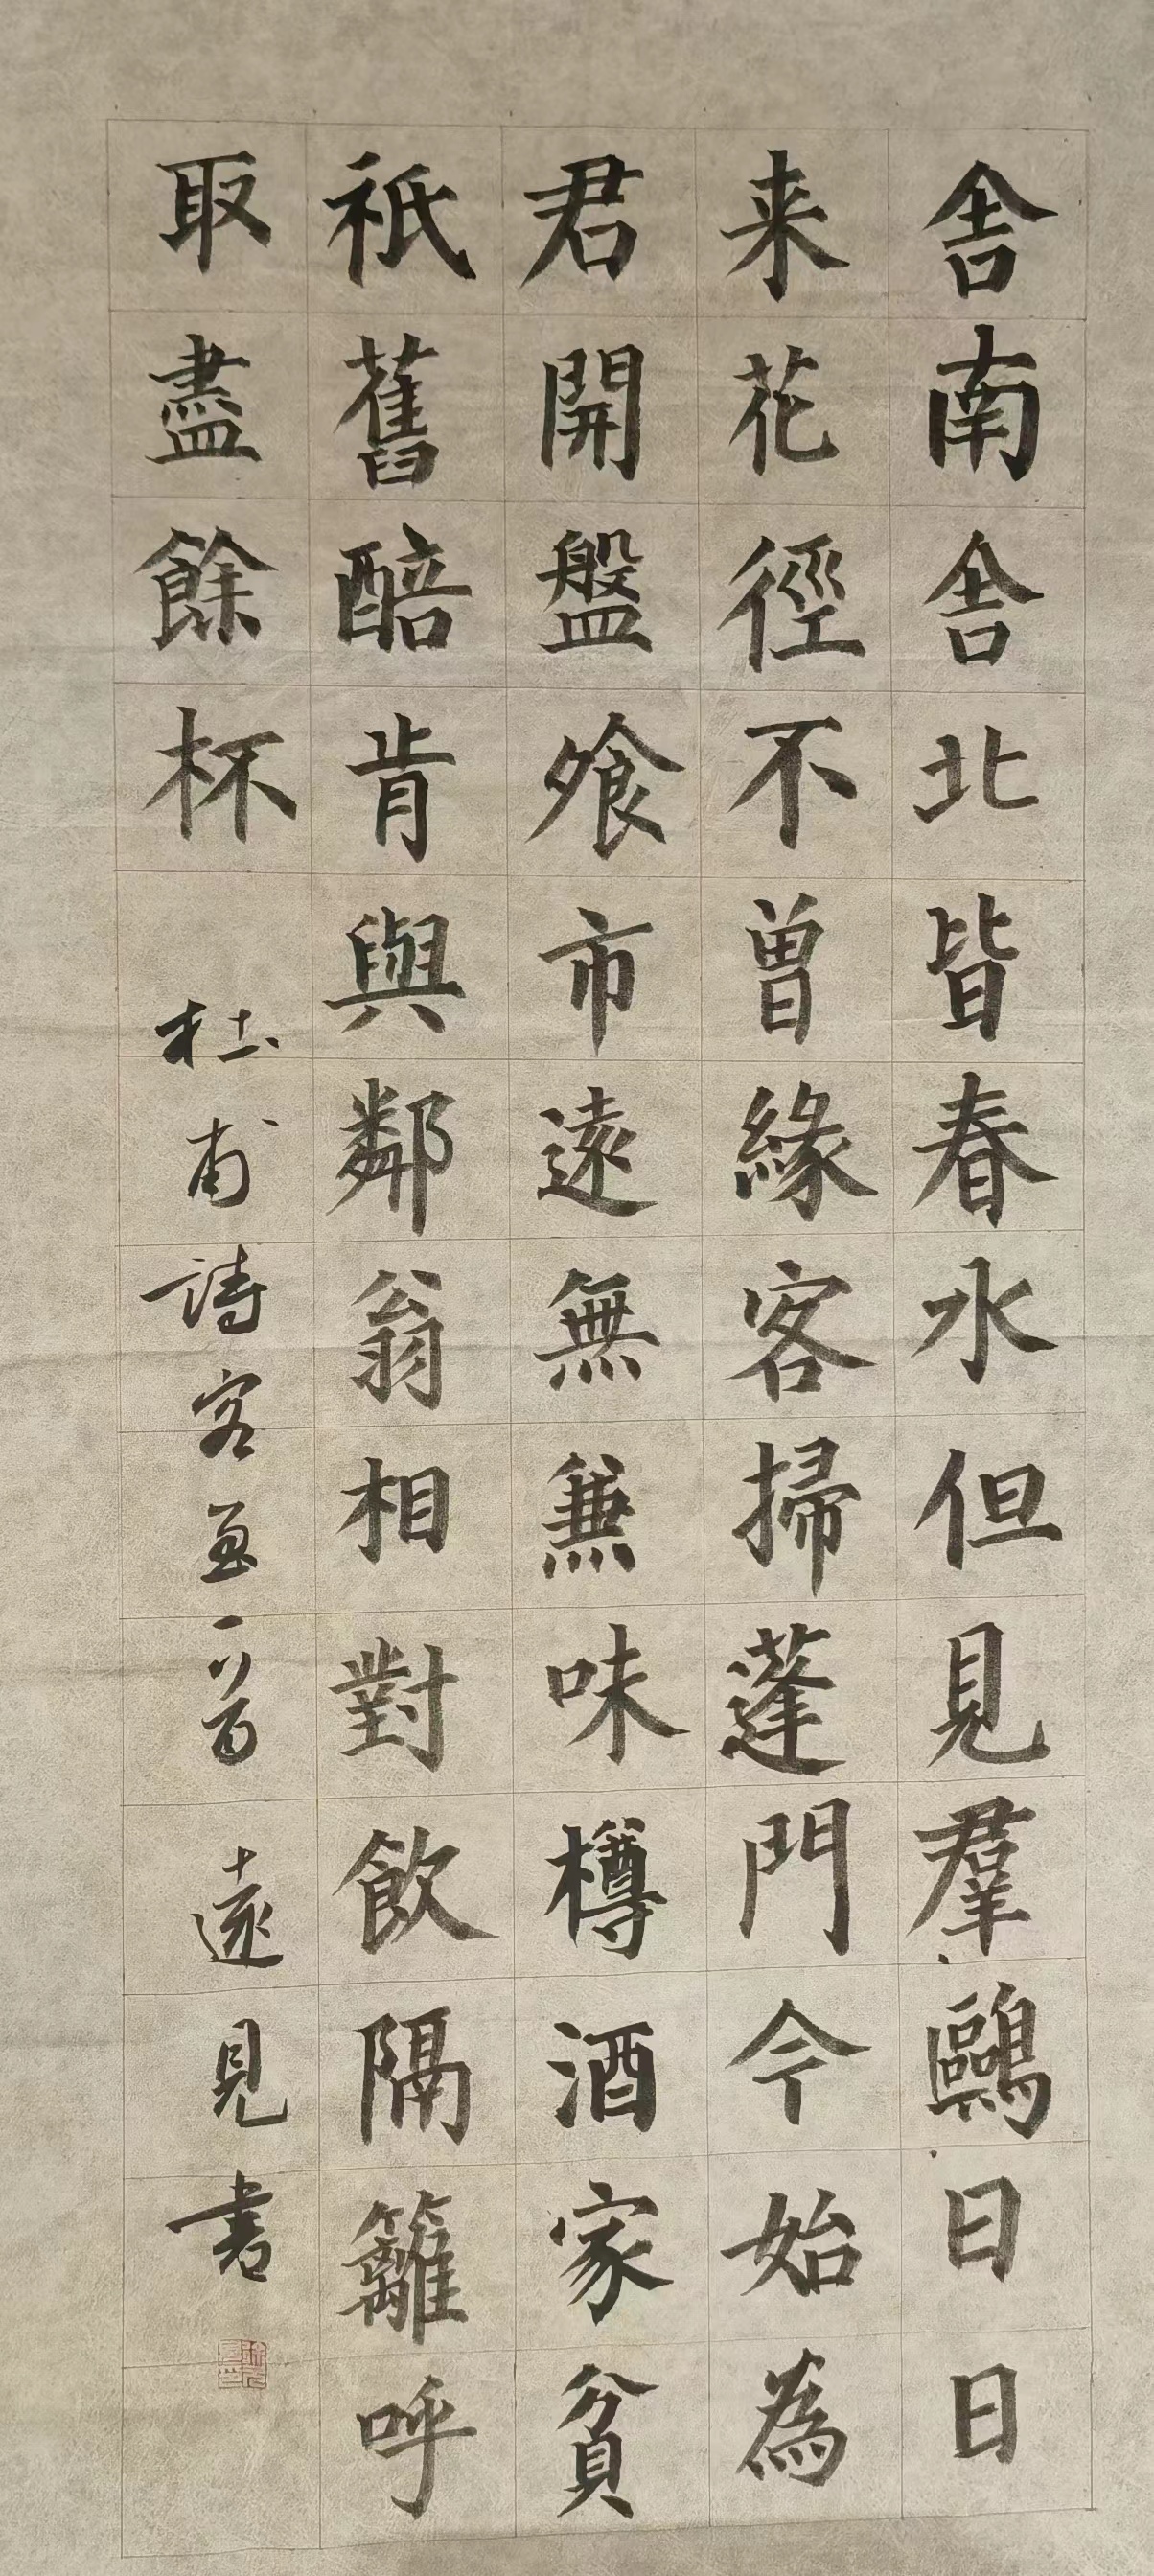 舎南舎北皆春水但見羣鷗日日
来花徑不曽緣客掃蓬門今始為
君開盤飧市遠無兼味樽酒家貧
祇舊醅肯與鄰翁相對飲隔籬呼
取盡餘杯
杜甫詩客至一首
遠見書